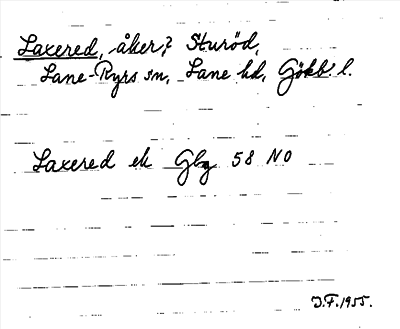 Laxered, åker,? Sturöd,
Lane-Ryrs sn, Lane hd, Gökb. l.
Laxered ek Gbg 58 NO
D.F. 1955.